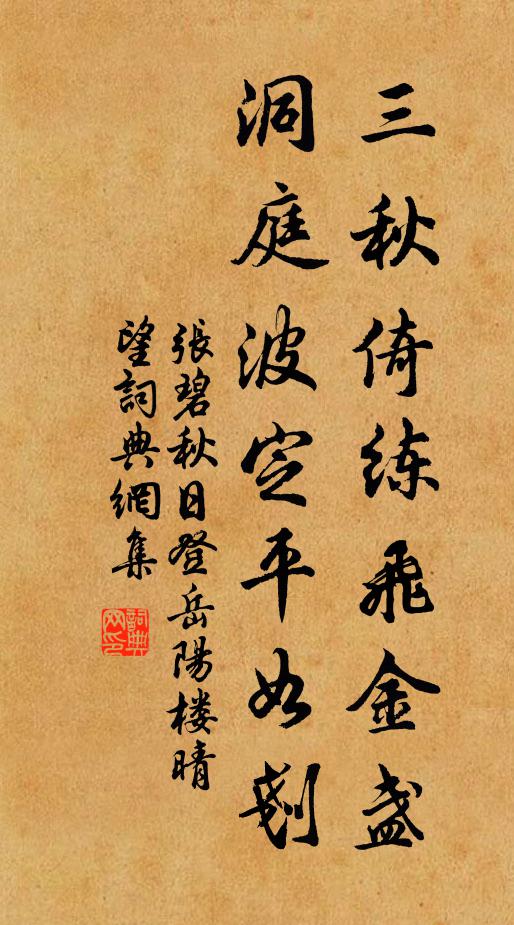 三秋倚练飛金盏
洞庭波定平如刬
張碧秋日登岳陽楼晴
望詞典網集
詞典網印